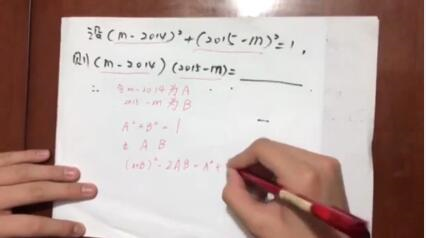 设(m-2014)²+(2015-m)²=1,
则(m-2014)(2015-m)=
∴ 令m-2014为A
2015-m为B
A²+B²=1
求 A B
(A+B)²-2AB=A²+